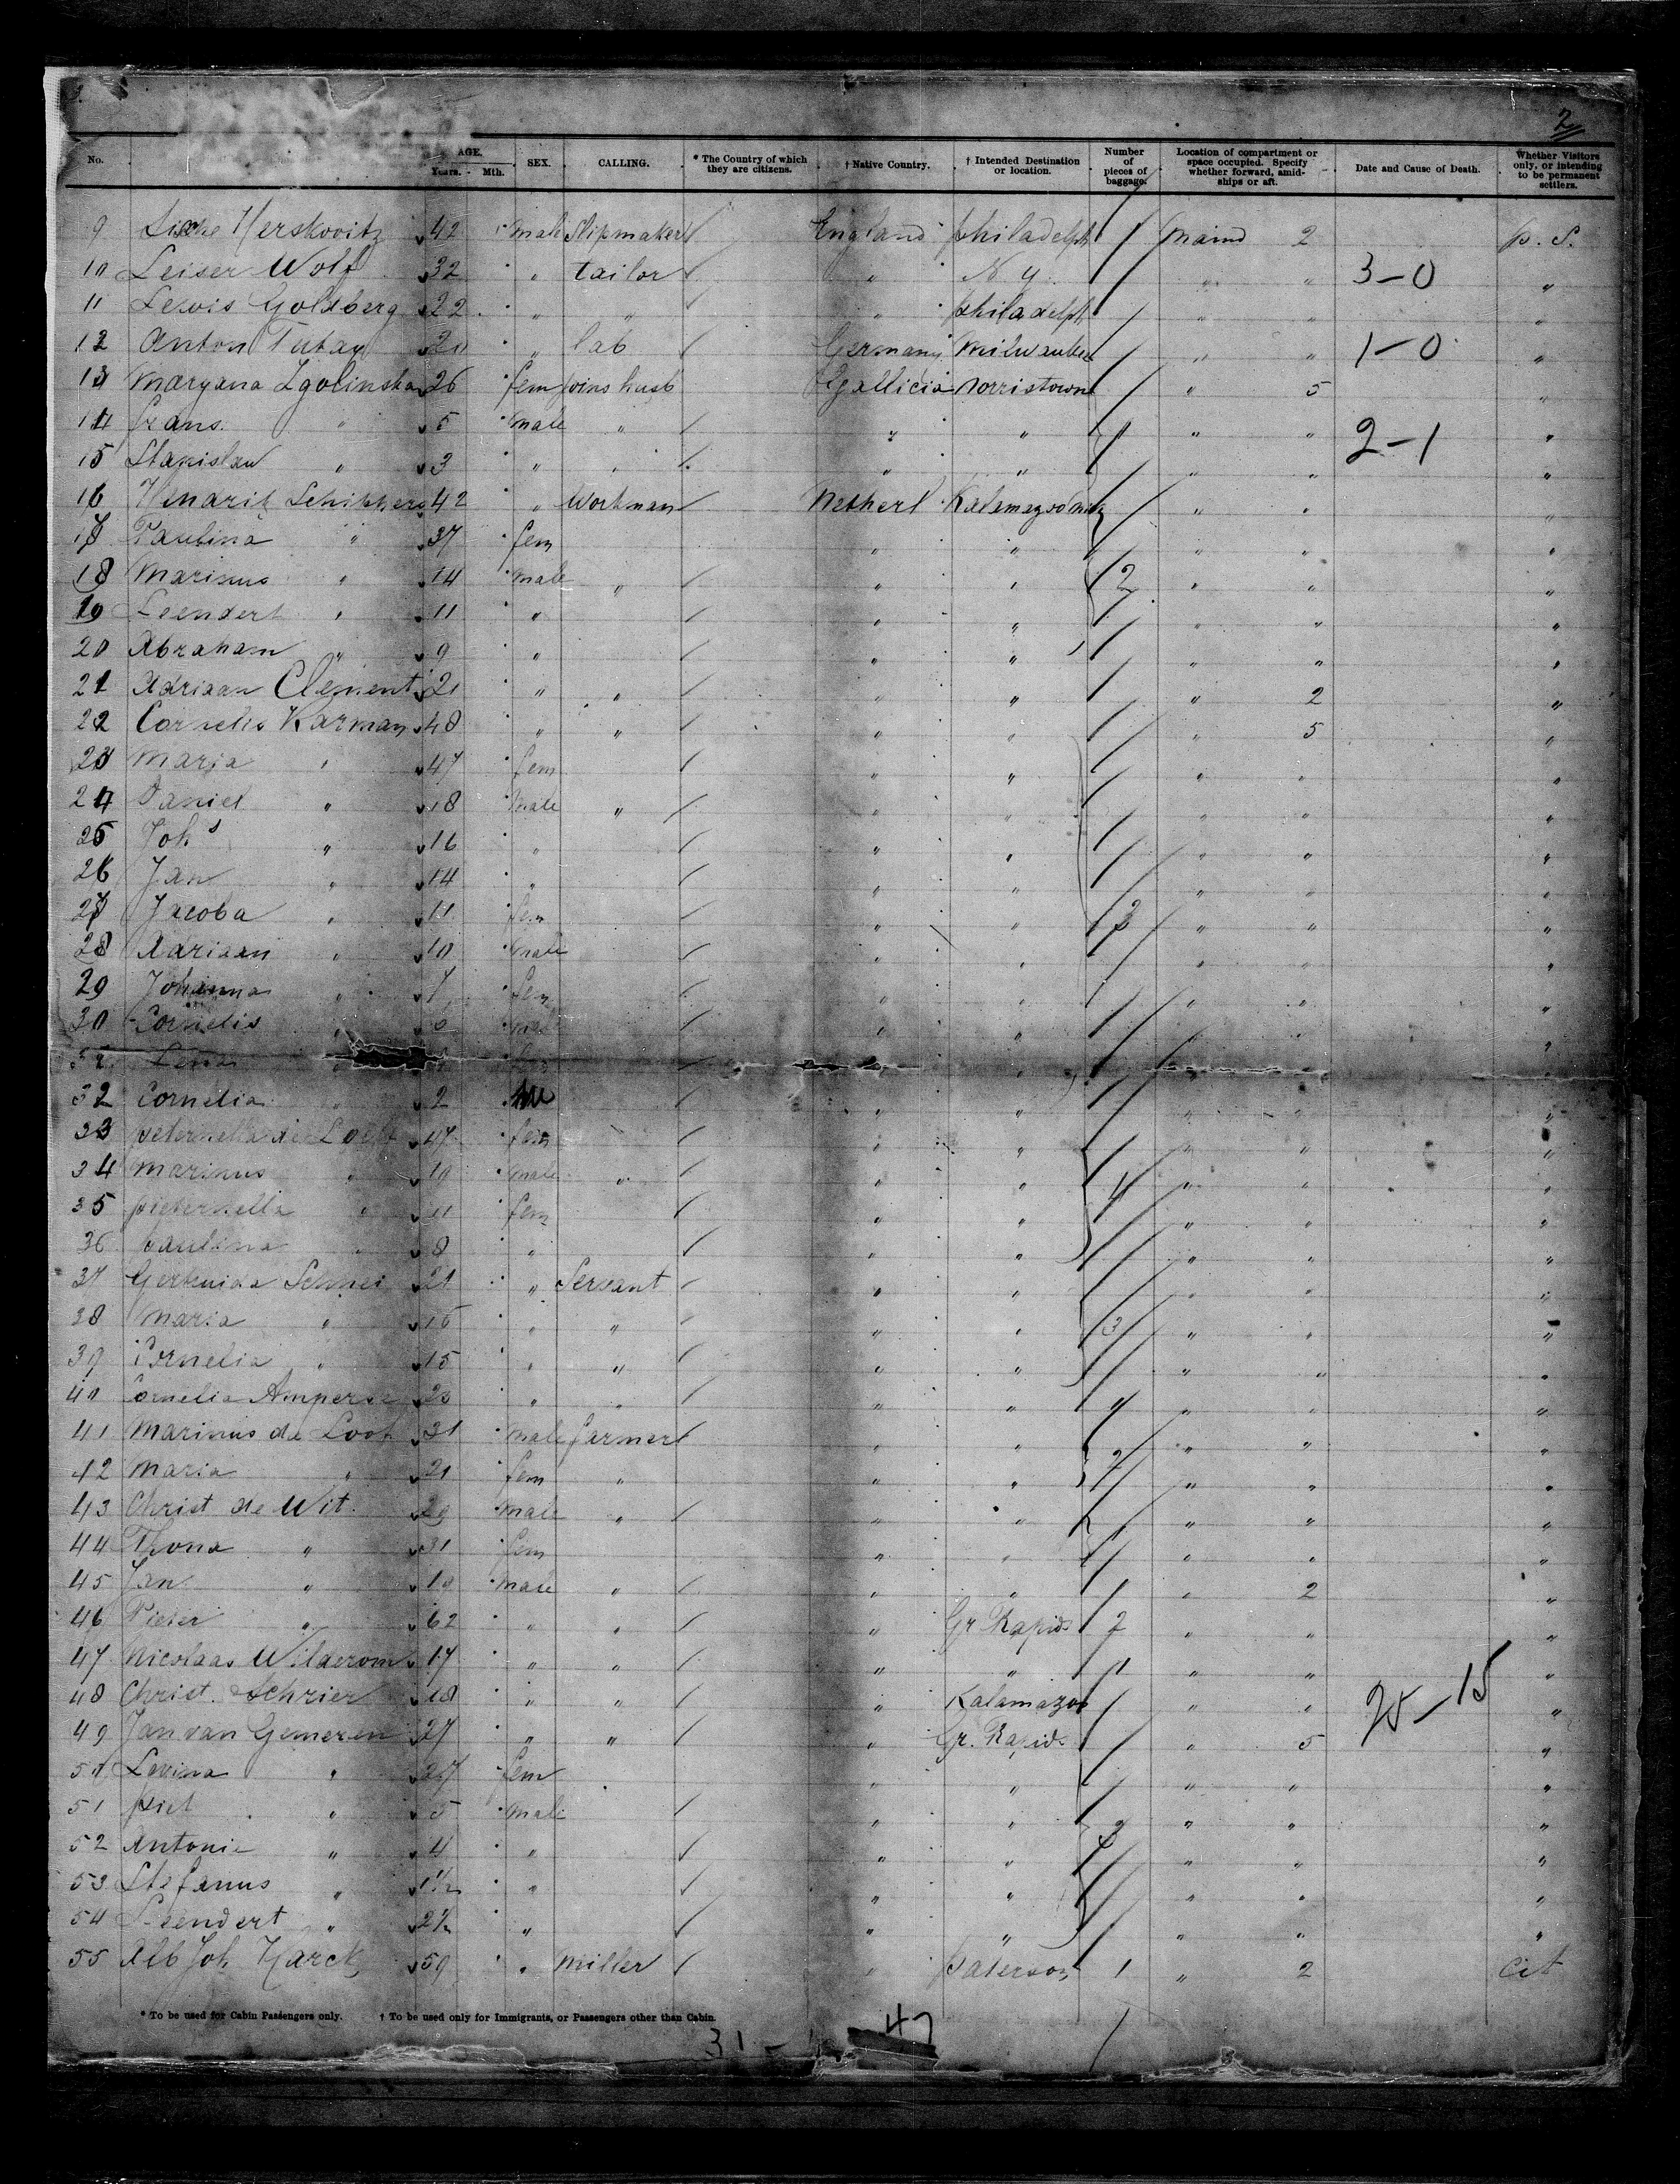 2
No. AGE. Years. Mth. SEX. CALLING. * The Country of which they are citizens. † Native Country. † Intended Destination or location. Number of pieces of baggage. Location of compartment or space occupied. Specify whether forward, amidships or aft. Date and Cause of Death. Whether Visitors only, or intending to be permanent settlers.
9 Herskovitz 42 male England philadelph 1 maind 2 p. S.
10 Leiser Wolf 32 " tailor " N y " " 3-0 "
11 Lewis Goldberg 22 " " " philadelph " " "
12 Anton Tutay 20 " lab Germany Milwaukee " " 1-0 "
13 Maryana Zgolinska 26 fem joins husb Gallicia Norristown " 5 "
14 frans " 5 male " " " 1 " " 2-1 "
15 Stanislaw " 3 " " " " " " "
16 Hendrik 42 " Workman Netherl Kalamazoo " " "
17 Paulina " 37 fem " " " " "
18 Marinus " 14 male " " " 2 " " "
19 Leendert " 11 " " " " " "
20 Abraham " 9 " " " " " "
21 Adriaan Clement 21 " " " " " 2 "
22 Cornelis Karman 48 " " " " " 5 "
23 Maria " 47 fem " " " " "
24 Daniel " 18 male " " " " " "
25 Joh s " 16 " " " " " "
26 Jan " 14 " " " " " "
27 Jacoba " 11 fem " " 3 " " "
28 Adriaan " 10 male " " " " "
29 Johanna " 7 fem " " " " "
30 Cornelis " " " " " "
Lena " "
32 Cornelia " 2 " " " " "
33 47 fem " " " " "
34 Marinus " 19 male " " " 4 " " "
35 pieternella " 11 fem " " " " "
36 paulina " 8 " " " " " "
37 21 " Servant " " " " "
38 Maria " 16 " " " " 3 " " "
39 Cornelia " 15 " " " " " " "
40 Cornelia Amperse 20 " " " " " " "
41 Marinus de 31 male farmer " " " " "
42 Maria " 21 fem " " " 2 " " "
43 Christ de Wit 29 male " " " " " "
44 Thona " 31 fem " " 1 " " "
45 Jan " 19 male " " " " 2 "
46 Pieter " 62 " " " Gr Rapids 2 " " "
47 Nicolaas 17 " " " " 1 " " "
48 Christ. Schrier 18 " " " Kalamazoo " " 25-15 "
49 Jan van Gemeren 27 " " " Gr. Rapids " 5 "
50 Levina " 27 fem " " " " "
51 piet " 5 male " " " " "
52 Antonie " 4 " " " 2 " " "
53 Stefanus " 1½ " " " " " "
54 Leendert " 2½ " " " " " "
55 Alb Joh 59 " Miller " paterson 1 " 2 cit
* To be used for Cabin Passengers only. † To be used only for Immigrants, or Passengers other than Cabin.
31 - 47